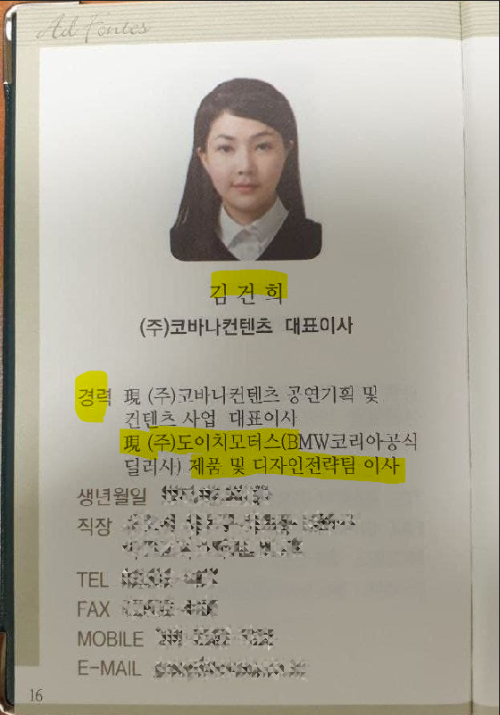 Ad Fontes
김 건 희
(주)코바나컨텐츠 대표이사
경력 現 (주)코바나컨텐츠 공연기획 및
컨텐츠 사업 대표이사
現 (주)도이치모터스(BMW코리아공식
딜러사) 제품 및 디자인전략팀 이사
생년월일
직장
TEL
FAX
MOBILE
E-MAIL
16